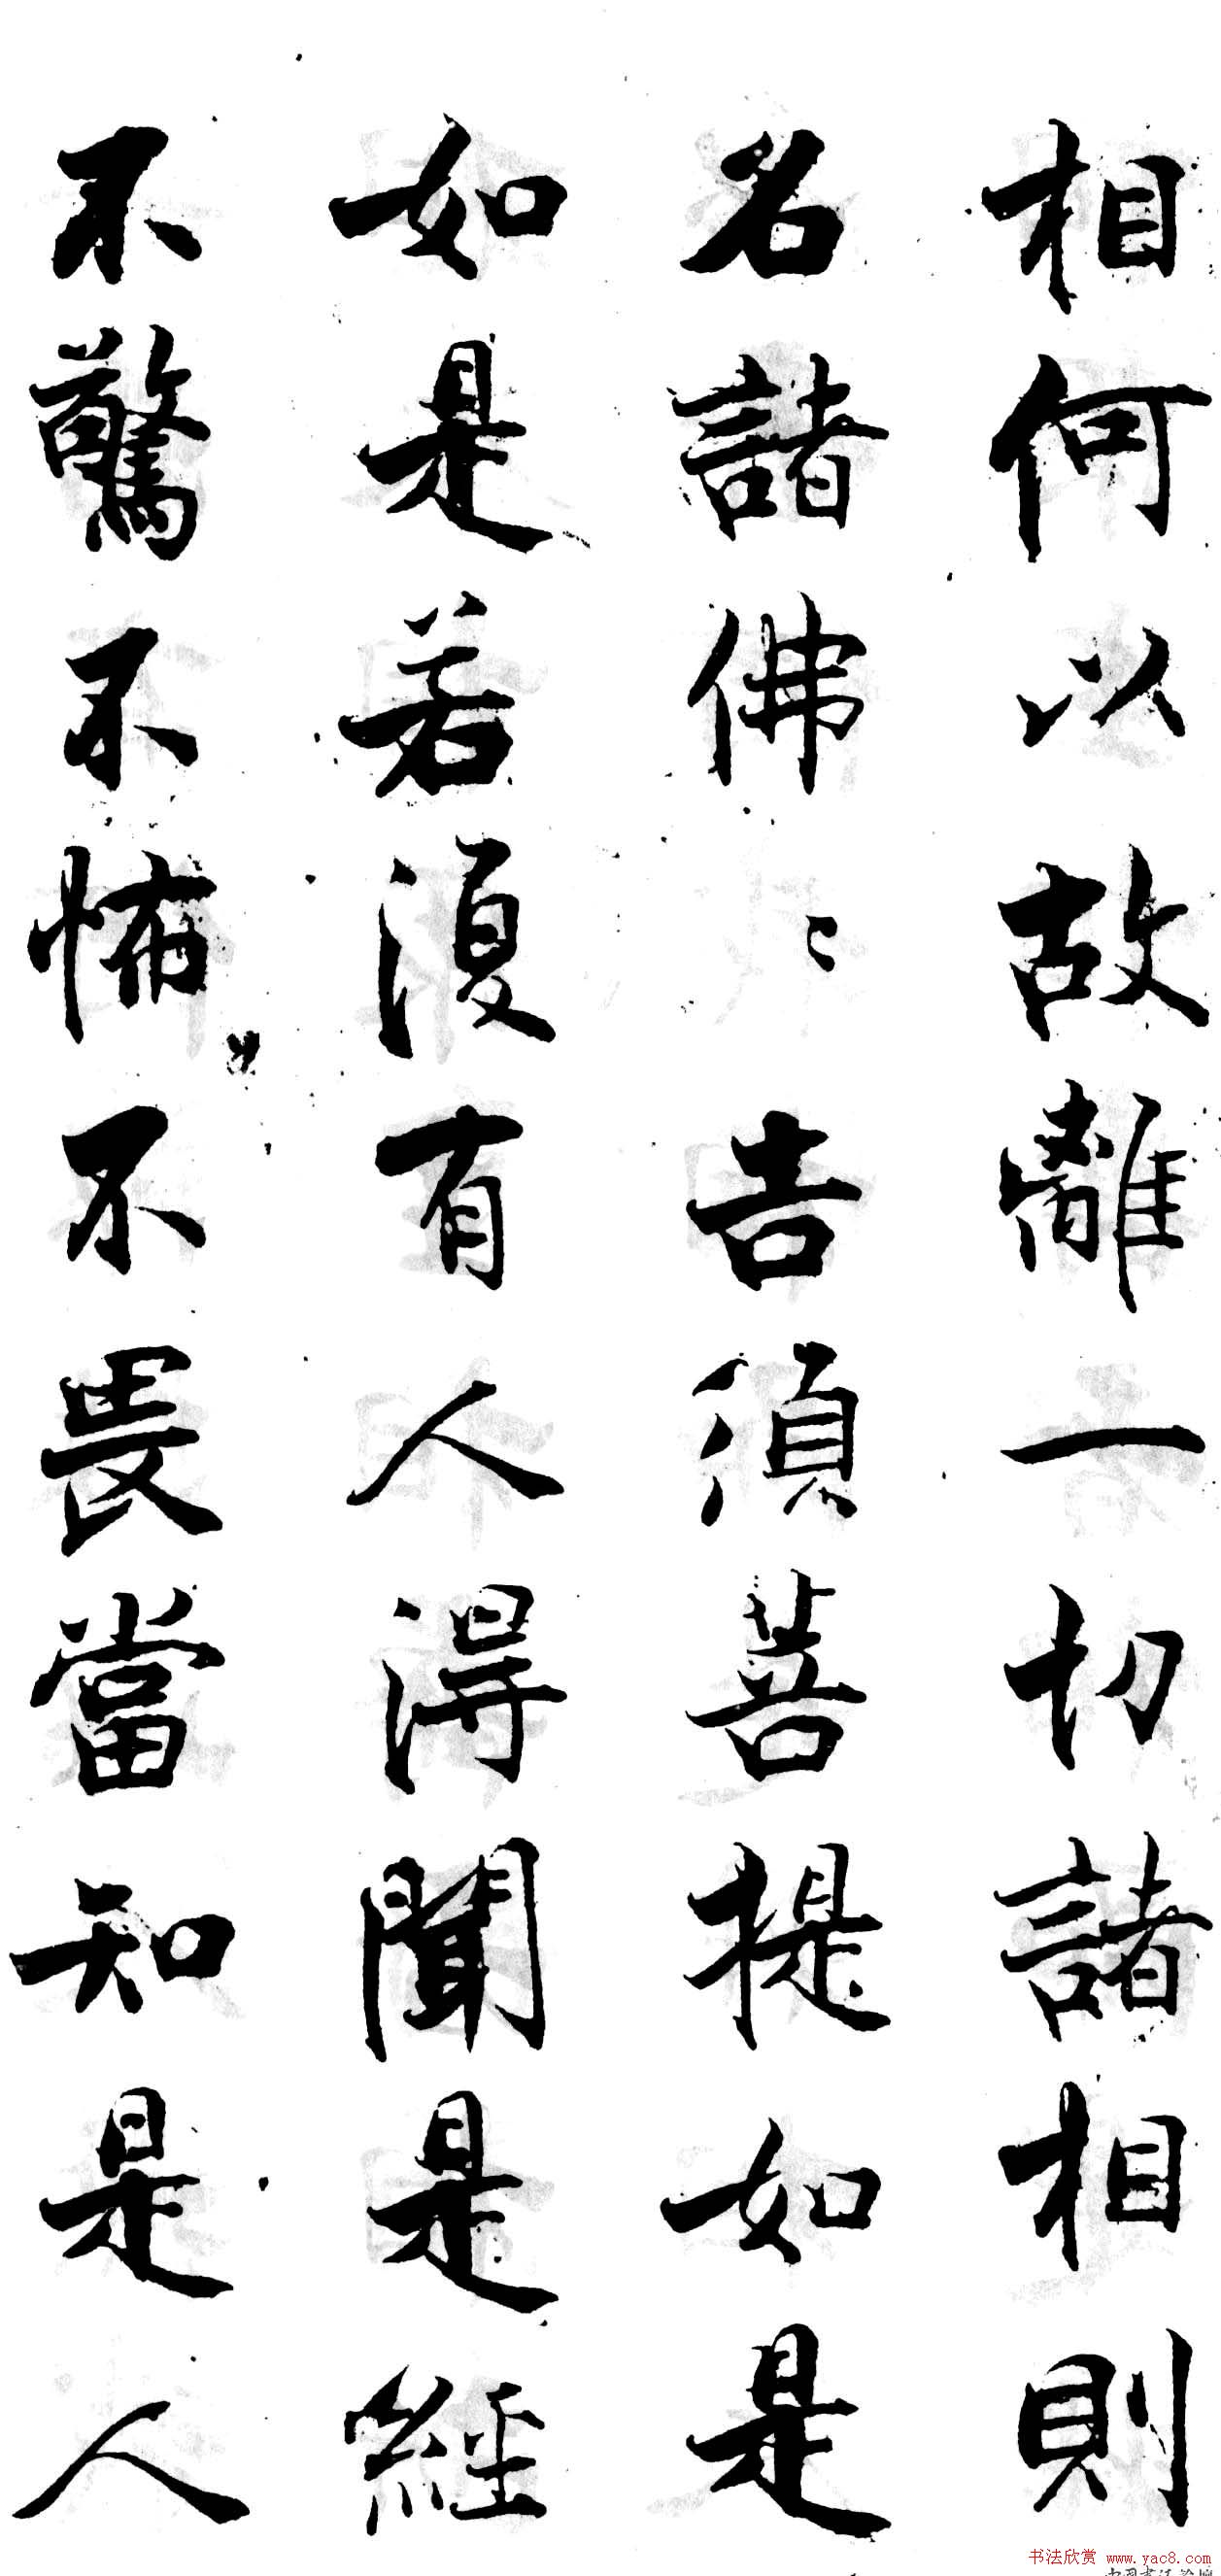 相何以故離一切諸相則
名諸佛〻告須菩提如是
如是若復有人得聞是經
不驚不怖不畏當知是人
书法欣赏 www.yac8.com